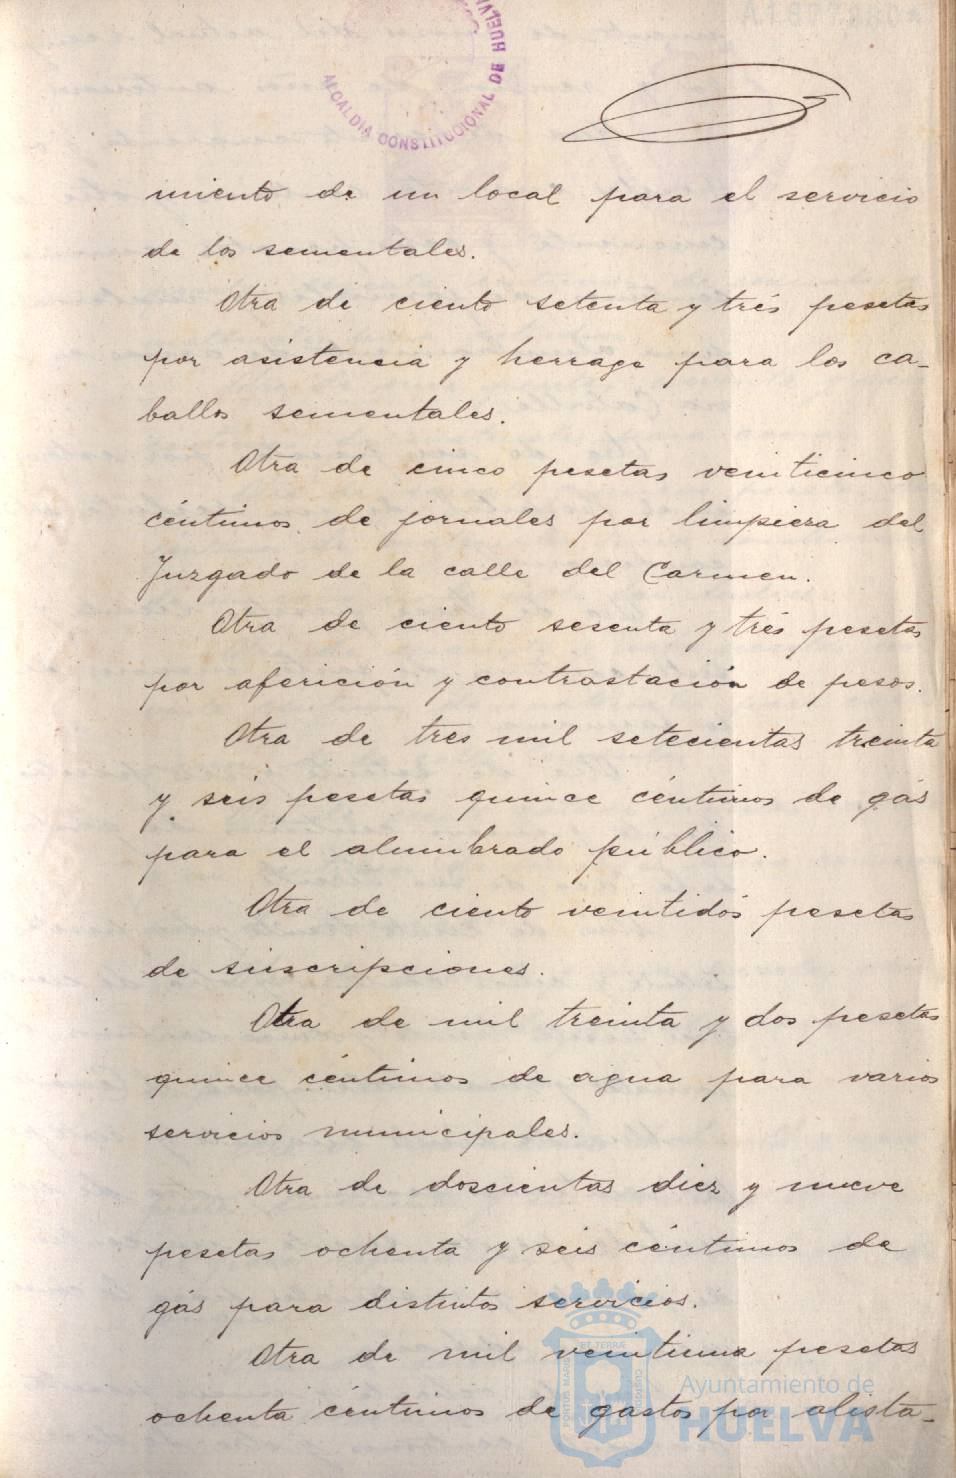 ALCALDÍA CONSTITUCIONAL DE HUELVA
miento de un local para el servicio
de los sementales.
Otra de ciento setenta y trés pesetas
por asistencia y herrage para los ca-
ballos sementales.
Otra de cinco pesetas veinticinco
céntimos de jornales por limpieza del
Juzgado de la calle del Carmen.
Otra de ciento sesenta y trés pesetas
por aferición y contrastación de pesos.
Otra de tres mil setecientas treinta
y seis pesetas quince céntimos de gás
para el alumbrado público.
Otra de ciento veintidós pesetas
de suscripciones.
Otra de mil treinta y dos pesetas
quince céntimos de agua para varios
servicios municipales.
Otra de doscientas diez y nueve
pesetas ochenta y seis céntimos de
gás para distintos servicios.
Otra de mil veintiuna pesetas
ochenta céntimos de gastos por alista-
Ayuntamiento de
HUELVA